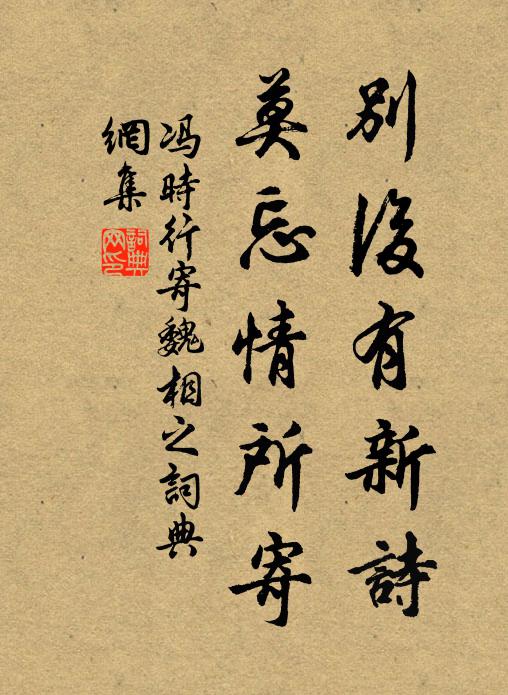 別後有新詩
莫忘情所寄
冯時行寄魏相之詞典
網集
詞典
网印